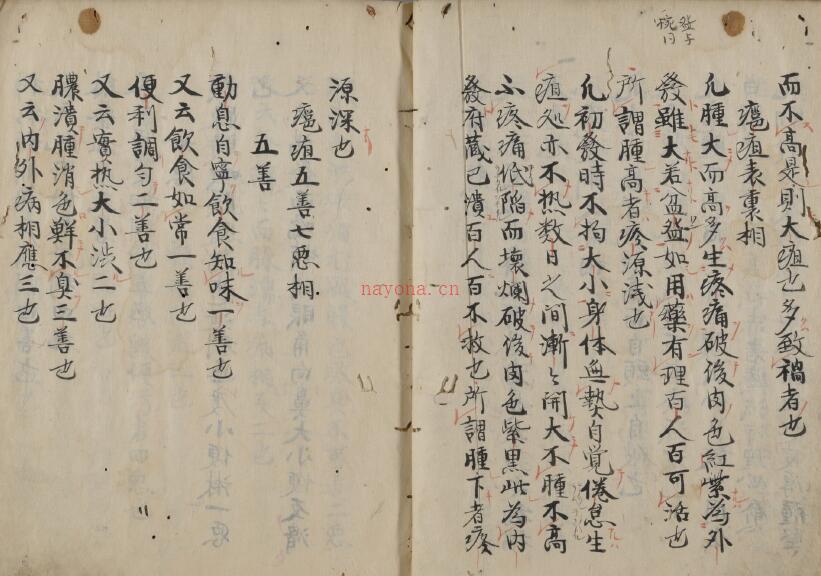 而不高是則大疽也多致禍者也
癰疽表裏相
凡腫大而高多生疼痛破後肉色紅紫為外
發雖大若盆盌如用藥有理百人百可活也
所謂腫高者疼源浅也
凡初發時不拘大小身体無熱自覚倦怠生
疽処亦不热数日之间漸々開大不腫不高
不疼痛低陥而壊爛破後肉色紫黒此為内
發府蔵已潰百人百不救也所謂腫下者疼
源深也
癰疽五善七悪相
五善
動息自寧飲食知味一善也
又云飲食如常一善也
便利調匀二善也
又云實热大小渋二也
膿潰腫消色鮮不臭三善也
又云内外病相應三也
nayona.cn